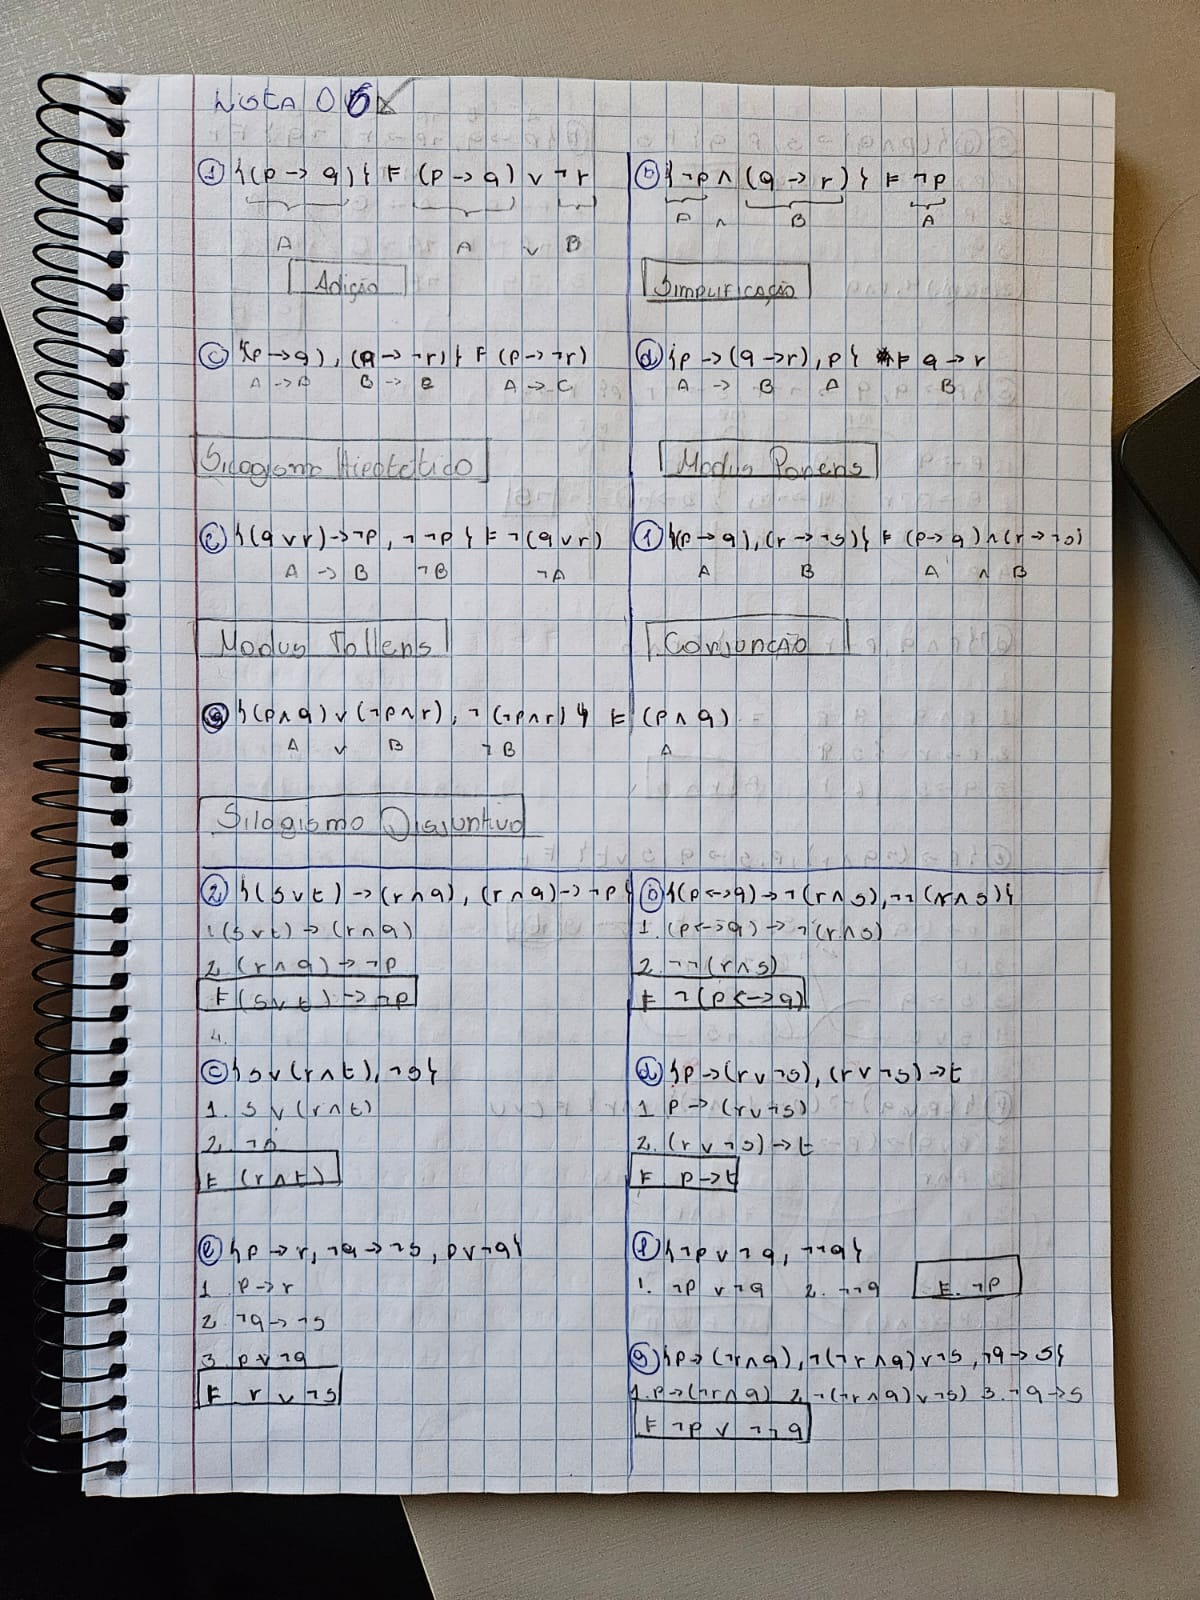 Lista 06
① {(p → q)} ⊨ (p → q) ∨ ¬r
A A ∨ B
Adição
ⓑ {¬p ∧ (q → r)} ⊨ ¬p
A ∧ B A
Simplificação
ⓒ {(p → q), (q → ¬r)} ⊨ (p → ¬r)
A → B B → C A → C
Silogismo Hipotético
ⓓ {p → (q → r), p} ⊨ q → r
A → B A B
Modus Ponens
ⓔ {(q ∨ r) → ¬p, ¬¬p} ⊨ ¬(q ∨ r)
A → B ¬B ¬A
Modus Tollens
ⓕ {(p → q), (r → ¬s)} ⊨ (p → q) ∧ (r → ¬s)
A B A ∧ B
Conjunção
ⓖ {(p ∧ q) ∨ (¬p ∧ r), ¬(¬p ∧ r)} ⊨ (p ∧ q)
A ∨ B ¬B A
Silogismo Disjuntivo
② {(s ∨ t) → (r ∧ q), (r ∧ q) → ¬p}
1. (s ∨ t) → (r ∧ q)
2. (r ∧ q) → ¬p
⊨ (s ∨ t) → ¬p
4.
ⓑ {(p ↔ q) → ¬(r ∧ s), ¬¬(r ∧ s)}
1. (p ↔ q) → ¬(r ∧ s)
2. ¬¬(r ∧ s)
⊨ ¬(p ↔ q)
ⓒ {s ∨ (r ∧ t), ¬s}
1. s ∨ (r ∧ t)
2. ¬s
⊨ (r ∧ t)
ⓓ {p → (r ∨ ¬s), (r ∨ ¬s) → t
1 p → (r ∨ ¬s)
2. (r ∨ ¬s) → t
⊨ p → t
ⓔ {p → r, ¬q → ¬s, p ∨ ¬q}
1 p → r
2. ¬q → ¬s
3. p ∨ ¬q
⊨ r ∨ ¬s
ⓕ {¬p ∨ ¬q, ¬¬q}
1. ¬p ∨ ¬q 2. ¬¬q ⊨. ¬p
ⓖ {p → (¬r ∧ q), ¬(¬r ∧ q) ∨ ¬s, ¬q → s}
1. p → (¬r ∧ q) 2. ¬(¬r ∧ q) ∨ ¬s) 3. ¬q → s
⊨ ¬p ∨ ¬¬q